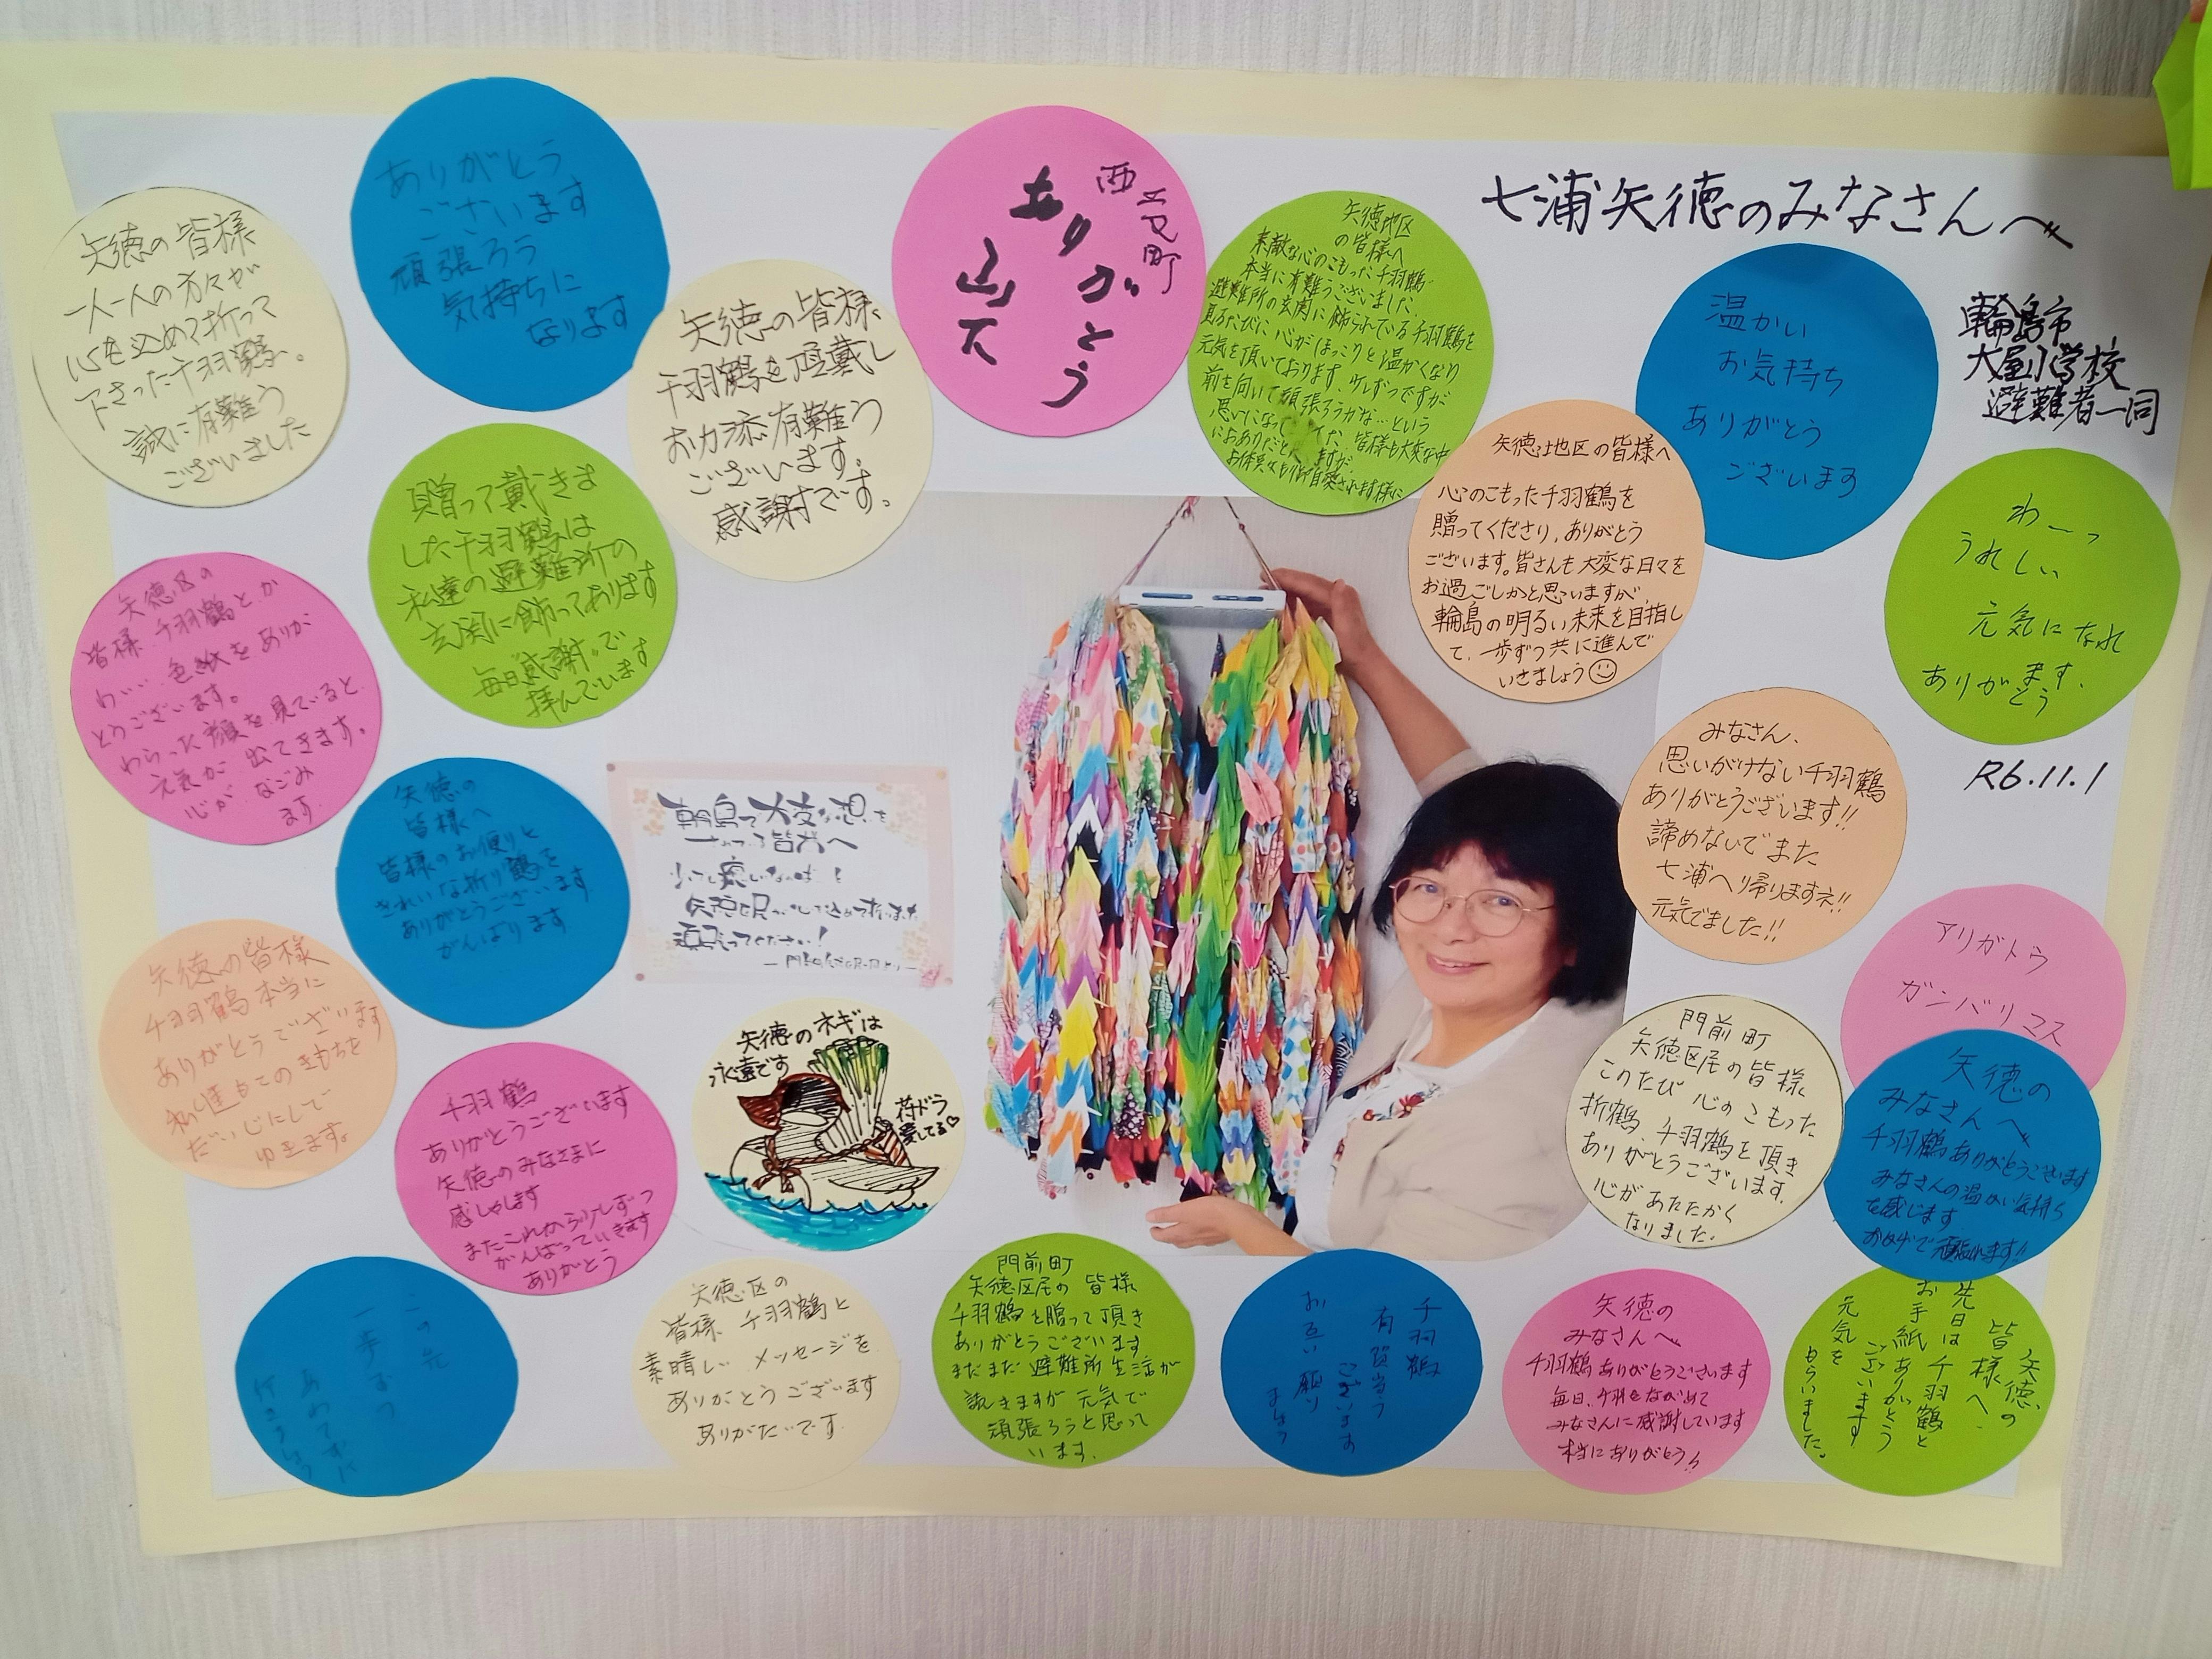 七浦矢徳のみなさんへ
輪島市
大屋小学校
避難者一同
R6.11.1
矢徳の皆様
一人一人の方々が
心を込めて折って
下さった千羽鶴へ。
誠に有難う
ございました
ありがとう
ございます
頑張ろう
気持ちに
なります
矢徳の皆様
千羽鶴を頂戴し
お力添有難う
ございます。
感謝です。
ありがとう
矢徳地区
の皆様へ
素敵な心のこもった千羽鶴
本当に有難うございました。
避難所の玄関に飾られている千羽鶴を
見るたびに心がほっこりと温かくなり
元気を頂いております。少しずつですが
前を向いて頑張ろうかな…という
皆様も大変な中
温かい
お気持ち
ありがとう
ございます
矢徳地区の皆様へ
心のこもった千羽鶴を
贈ってくださり、ありがとう
ございます。皆さんも大変な日々を
お過ごしかと思いますが、
輪島の明るい未来を目指し
て、一歩ずつ共に進んで
いきましょう☺
わーっ
うれしい
元気になれ
ます。
ありがとう
贈って戴きま
した千羽鶴は
私達の避難所の
玄関に飾ってあります
毎日感謝で
拝んでいます
矢徳区の
皆様、千羽鶴とか
わいい色紙をありが
とうございます。
わらった顔を見ていると
元気が出てきます。
心がなごみ
ます。
矢徳の
皆様へ
皆様のお便りと
きれいな折り鶴を
ありがとうございます
がんばります
みなさん、
思いがけない千羽鶴
ありがとうございます!!
諦めないでまた
七浦へ帰りますネ!!
元気でました!!
アリガトウ
ガンバリマス
矢徳の皆様
千羽鶴本当に
ありがとうでざいます
だいじにしで
ゆきます。
千羽鶴
ありがとうございます
矢徳のみなさまに
感しゃします
またこれから少しずつ
がんばっていきます
ありがとう
矢徳のネギは
永遠です
愛してる♡
門前町
矢徳区民の皆様
このたび心のこもった
折鶴、千羽鶴を頂き
ありがとうございます。
心があたたかく
なりました。
矢徳の
みなさんへ
千羽鶴ありがとうございます
みなさんの温かい気持ち
を感じます
おかげで頑張れます!!
矢徳区の
皆様 千羽鶴と
素晴しいメッセージを
ありがとうございます
ありがたいです。
門前町
矢徳区民の皆様
千羽鶴を贈って頂き
ありがとうございます。
まだまだ避難所生活が
続きますが元気で
頑張ろうと思って
います。
千羽鶴
有難う
ございます
矢徳の
みなさんへ
千羽鶴ありがとうございます
毎日、千羽をながめて
みなさんに感謝しています
本当にありがとう!!
矢徳の
皆様へ
先日は千羽鶴と
お手紙ありがとう
ございます
元気を
もらいました。